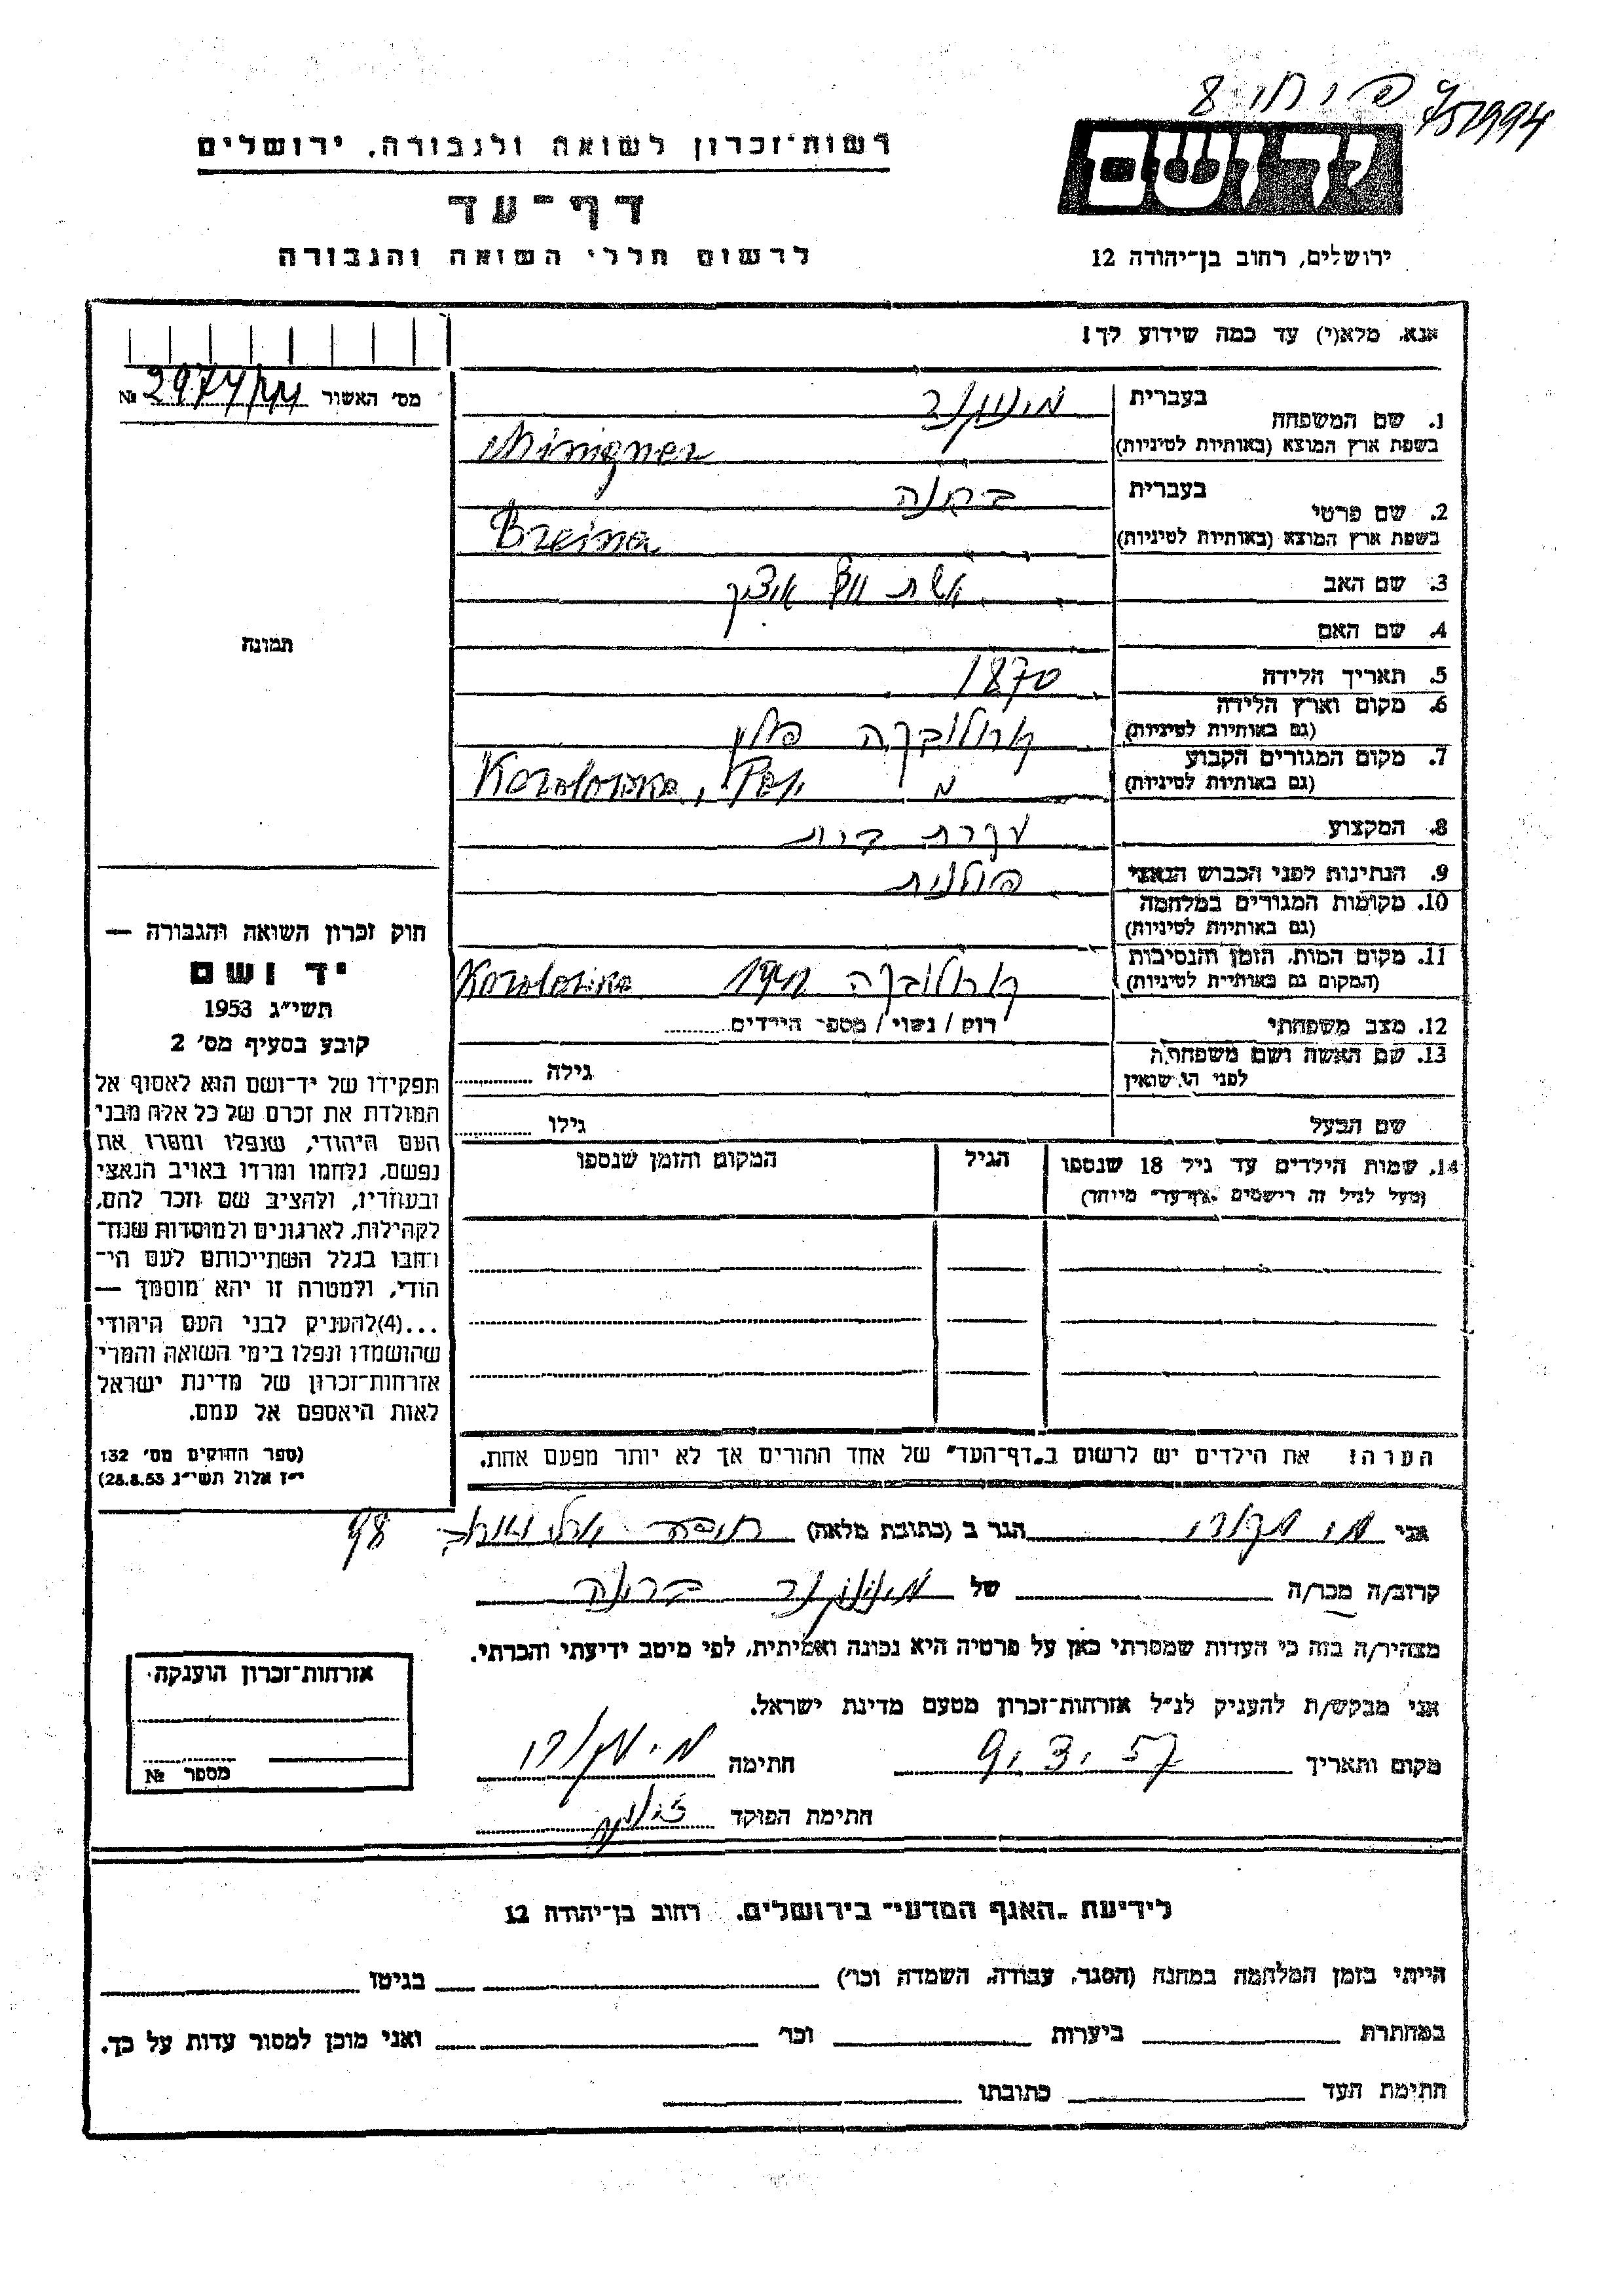 751994
רשות־זכרון לשואה ולגבורה, ירושלים
יד ושם
דף־עד
לרשום חללי השואה והגבורה
ירושלים, רחוב בן־יהודה 12
אנא, מלא(י) עד כמה שידוע לך!
מס' האשור 2974/44 №
בעברית
1. שם המשפחה
בשפת ארץ המוצא (באותיות לטיניות) Minigner
בעברית
2. שם פרטי
בשפת ארץ המוצא (באותיות לטיניות) Breina
3. שם האב אשת איציק
4. שם האם
5. תאריך הלידה 1870
6. מקום וארץ הלידה קורולובקה פולין
(גם באותיות לטיניות)
7. מקום המגורים הקבוע
(גם באותיות לטיניות) Korolowka,
8. המקצוע עקרת בית
9. הנתינות לפני הכבוש הנאצי פולנית
10. מקומות המגורים במלחמה
(גם באותיות לטיניות)
11. מקום המות, הזמן והנסיבות קורולובקה 1941 Korolowka
(המקום גם באותיות לטיניות)
12. מצב משפחתי רווק / נשוי / מספר הילדים
13. שם האשה ושם משפחתה
לפני הנישואין גילה
שם הבעל גילו
14. שמות הילדים עד גיל 18 שנספו הגיל המקום והזמן שנספו
(מעל לגיל זה רישמים „דף־עד" מיוחד)
הערה: את הילדים יש לרשום ב„דף־העד" של אחד ההורים אך לא יותר מפעם אחת.
תמונה
חוק זכרון השואה והגבורה —
יד ושם
תשי"ג 1953
קובע בסעיף מס' 2
תפקידו של יד־ושם הוא לאסוף אל
המולדת את זכרם של כל אלה מבני
העם היהודי, שנפלו ומסרו את
נפשם, נלחמו ומרדו באויב הנאצי
ובעוזריו, ולהציב שם וזכר להם,
לקהילות, לארגונים ולמוסדות שנח־
רבו בגלל השתייכותם לעם הי־
הודי, ולמטרה זו יהא מוסמך —
...(4)להעניק לבני העם היהודי
שהושמדו ונפלו בימי השואה והמרי
אזרחות־זכרון של מדינת ישראל
לאות היאספם אל עמם.
(ספר החוקים מס' 132
י"ז אלול תשי"ג 28.8.53)
אני הגר ב (כתובת מלאה) חיפה 98
קרוב/ה מכר/ה של
מצהיר/ה בזה כי העדות שמסרתי כאן על פרטיה היא נכונה ואמיתית, לפי מיטב ידיעתי והכרתי.
אני מבקש/ת להעניק לנ"ל אזרחות־זכרון מטעם מדינת ישראל.
מקום ותאריך 9.3.57 חתימה
חתימת הפוקד
אזרחות־זכרון הוענקה.
מספר №
לידיעת „האגף המדעי" בירושלים. רחוב בן־יהודה 12
הייתי בזמן המלחמה במחנה (הסגר, עבודה, השמדה וכו') בגיטו
במחתרת ביערות וכו' ואני מוכן למסור עדות על כך.
חתימת העד כתובתו